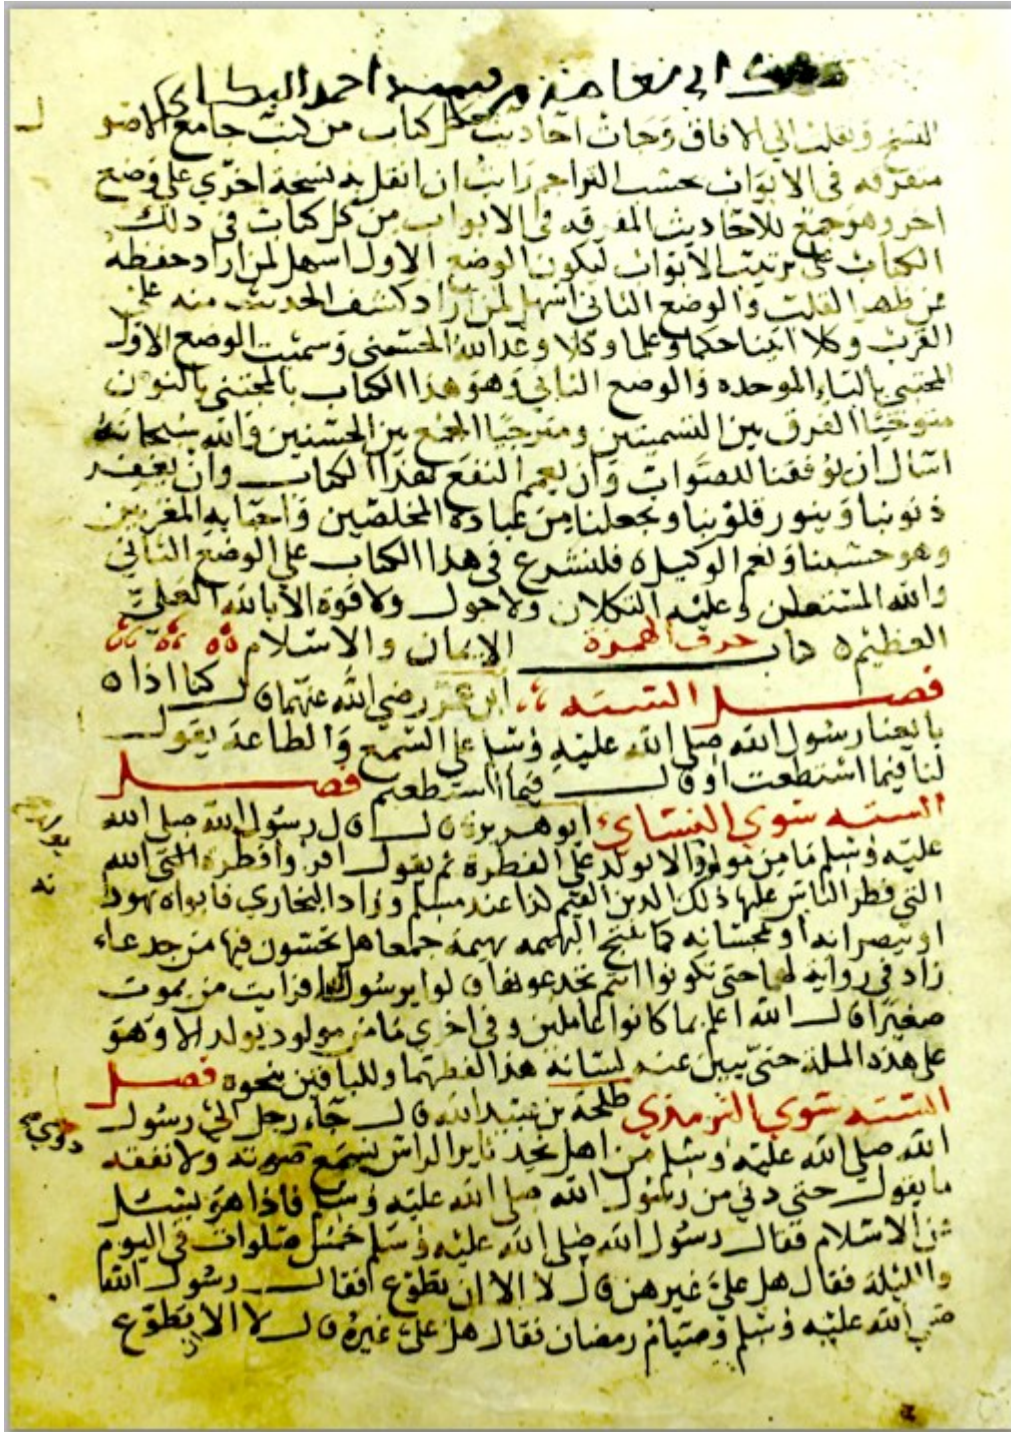 النسخ ونقلت الى الافاق وجات احاديث كل كتاب من كتب جامع الاصو
متفرقه في الابواب بحسب التراجم رايت ان انقل به نسخة اخري علي وضع
اخر وهو جمع للاحاديث المفرقه في الابواب من كل كتاب في ذلك
الكتاب على ترتيب الابواب ليكون الوضع الاول اسهل لمن اراد حفظه
عن ظهر القلب والوضع الثاني اسهل لمن اراد كشف الحديث منه علي
القرب وكلا اتينا حكما وعلما وكلا وعد الله الحسنى وسميت الوضع الاول
المجتبى بالباء الموحده والوضع الثاني وهو هذا الكتاب بالمجتنى بالنون
متوخيا الفرق بين التسميتين ومترجيا الجمع بين الحسنيين والله سبحانه
اسال ان يوفقنا للصواب وان يعمم النفع بهذا الكتاب وان يغفر
ذنوبنا وينور قلوبنا ويجعلنا من عباده المخلصين واحبابه المقربين
وهو حسبنا ونعم الوكيل ه فلنشرع في هذا الكتاب علي الوضع الثاني
والله المستعان وعليه التكلان ولا حول ولا قوة الا بالله العلي
العظيم ه حرف الهمزة كتاب الايمان والاسلام
فصل الستة ابن عمر رضي الله عنهما قال كنا اذا
بايعنا رسول الله صلى الله عليه وسلم علي السمع والطاعة يقول
لنا فيما استطعت او قال فيما استطعتم فصل
الستة سوي النسائي ابو هريرة قال قال رسول الله صلى الله
عليه وسلم ما من مولود الا يولد على الفطرة ثم يقول اقروا فطرة الله
التي فطر الناس عليها ذلك الدين القيم لذا عند مسلم وزاد البخاري فابواه يهودا
او ينصرانه او يمجسانه كما تنتج البهيمه بهيمة جمعا هل تحسون فيها من جدعاء
زاد في رواية لهما حتى تكونوا انتم تجدعونها قالوا يرسول الله افرايت من يموت
صغيرا قال الله اعلم بما كانوا عاملين وفي اخري ما من مولود يولد الا وهو
على هذه الملة حتى يبين عنه لسانه هذا لفظهما وللباقين بنحوه فصل
الستة سوي الترمذي طلحة بن عبيد الله قال جاء رجل الى رسول
الله صلى الله عليه وسلم من اهل نجد ثاير الراس يسمع صوته ولا نفقه
ما يقول حتى دنى من رسول الله صلى الله عليه وسلم فاذا هو يسئل
عن الاسلام فقال رسول الله صلى الله عليه وسلم خمس صلوات في اليوم
والليلة فقال هل علي غيرهن قال لا الا ان تطوع فقال رسول الله
صلى الله عليه وسلم وصيام رمضان فقال هل علي غيره قال لا الا ان تطوع